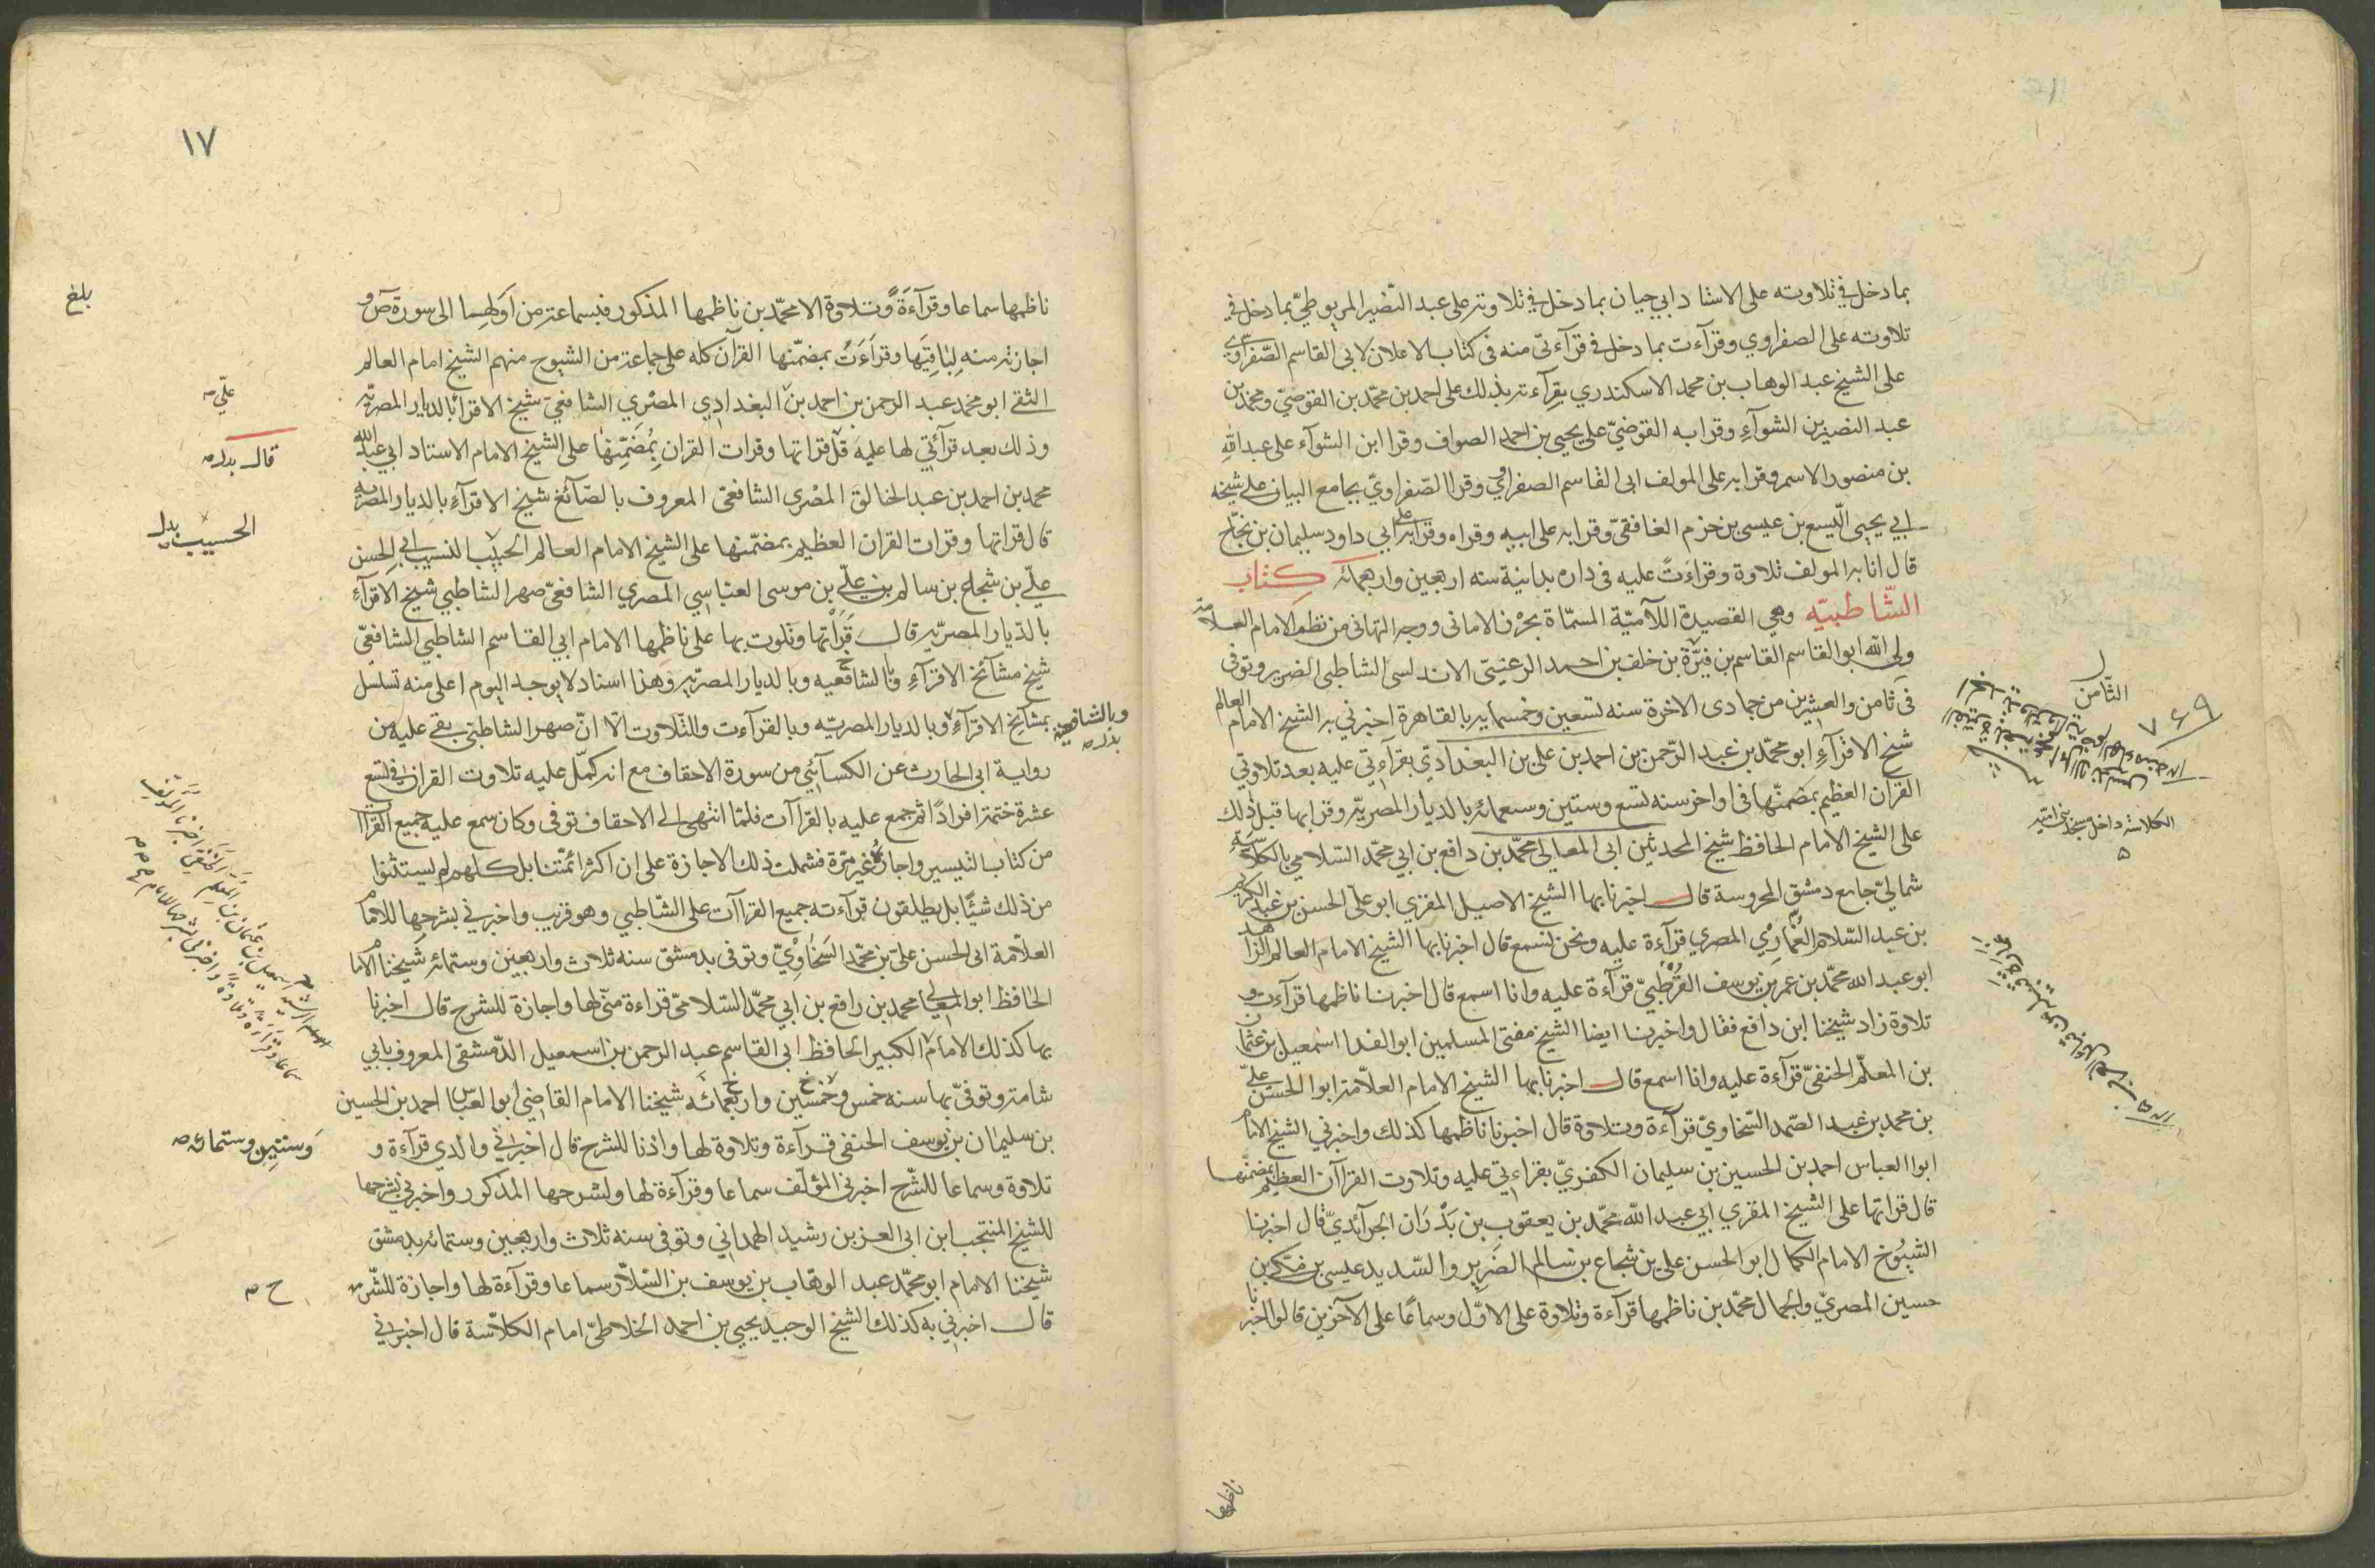 بما دخل في تلاوته على الاستاد ابي حيان بما دخل في تلاوته على عبد النّصير المريوطيّ بما دخل في
تلاوته على الصفراوي وقرآءت بما دخل في قرآءتى منه فى كتاب الاعلان لابى القاسم الصّفراوي
على الشيخ عبد الوهاب بن محمد الاسكندري بقرآءته بذلك على احمد بن محمّد بن القوصيّ ومحمد بن
عبد النصير بن الشوآءِ وقرا به القوصيّ على يحيى بن احمد الصواف وقرا ابن الشوآء على عبد الله
بن منصور الاسمر وقرا به على المولف ابى القاسم الصفراوي وقرا الصّفراويّ بجامع البيان على شيخه
ابي يحيى الّيسع بن عيسى بن حزم الغافقىّ وقرا به على ابيه وقراه وقرا به على ابي داود سليمان بن نجاح
قال انا به المولف تلاوة وقراءَتً عليه فى داره بدانية سنه اربعين واربعمائه كتاب
الشّاطبيّه وهي القصيدة اللآميّة المسمّاة بحرْز الامانى ووجه التهانى من نظم الامام العلامة
ولي الله ابو القاسم القاسم بن فيرّة بن خلف بن احمد الرعينيّ الاندلسى الشاطبى الضرير وتوفى
فى ثامن والعشرين من جمادى الاخرة سنه تسعين وخمسمايه بالقاهرة اخبرني به الشيخ الامام العالم
شيخ الاقرآءِ ابو محمّد بن عبد الرّحمن بن احمد بن على بن البغدادّي بقرآءتي عليه بعد تلاوتي
القرآن العظيم بمضمنّها فى اواخر سنه تسع وستين وسبعمائه بالديار المصريّه وقرا بها قبل ذلك
على الشيخ الامام الحافظ شيخ المحدثين ابى المعالى محمّد بن رافع بن ابي محمّد السّلامي بالكلّاسّةِ
شمالىّ جامع دمشق المحروسة قال اخبرنا بها الشيخ الاصيل المقري ابو علىّ الحسن بن عبد الكريم
بن عبد السّلام الغُمارِي المصري قرآءة عليه ونحن نسمع قال اخبرنا بها الشيخ الامام العالم الزاهد
ابو عبد الله محمّد بن عمر بن يوسف القُرطبيّ قرآءة عليه وانا اسمع قال اخبرنا ناظمها قرآءت و
تلاوة زاد شيخنا ابن رافع فقال واخبرنا ايضا الشيخ مفتى المسلمين ابو الفدا اسمعيل بن عثمان
بن المعلّم الحنفىّ قرآءة عليه وانا اسمع قال اخبرنا بها الشيخ الامام العلاّمة ابوا الحسن علىّ
بن محمد بن عبد الصّمد السّخاويّ قرآءة وتلاوة قال اخبرنا ناظمها كذلك واخبرني الشيخ الامام
ابوا العباس احمد بن الحسين بن سليمان الكفريّ بقراءتي عليه وتلاوت القرآن العظيم بمضمنّها
قال قراتها على الشيخ المقري ابي عبد اللّه محمّد بن يعقوب بن بَدْرَان الجرآئدىّ قال اخبرنا
الشيُوخ الامام الكمال ابو الحسن على بن شجاع بن سالم الضَرِير والسّديد عيسى بن مكي بن
حسين المصريّ والجمال محمّد بن ناظمها قرآءة وتلاوة على الاوّل وسماعًا على الآخرين قالوا اخبرنا
الثّامن
٧٦٩
الكلاسة داخل مسجد بنى اميّه
ناظمها
١٧
ناظمها سماعا وقرآءَةً وتلاوة الا محمّد بن ناظمها المذكور فبسماعته من اوّلها الى سورة صٓ و
اجازته منه لِبَاقِيَها وقرَآءَتً بمضمّنها القرآن كله على جماعة من الشيوخ منهم الشيخ امام العالم
التقي ابو محمد عبد الرحمن بن احمد بن البغدادِي المصْرِي الشافعىّ شيخ الاقرا بالديار المصريّه
وذلك بعد قرآئتي لها عليه قال قراتها وقرات القران بِمُضمّنِها على الشيخ الامام الاستاد ابي عبد الله
محمد بن احمد بن عبد الخالق المصْرى الشافعىّ المعروف بالصّائغ شيخ الاقرآءِ بالديار المصريه
قال قراتها وقرات القران العظيم بمضمّنها على الشيخ الامام العالم الحبيب النسيب ابي الحسن
علىّ بن شجاع بن سالم بن علىّ بن موسى العبّاسي المصري الشافعىّ صهر الشاطبي شيخ الاقرآءِ
بالدّيار المصريّه قال قَرَاْتها وتلوت بها على ناظمها الامام ابي القاسم الشاطبي الشافعىّ
شيخ مشآئخ الاقرآءِ وبالشافعيه وبالديار المصريّه وهذا اسناد لا يوجد اليوم اعلى منه تسلسل
بمشآيخ الاقرآءِ وبالديار المصريّه وبالقرآءت والتّلاوت الّا انّ صهر الشاطبّي بقى عليه من
رواية ابى الحارث عن الكسآئي من سورة الاحقاف مع انه كمّل عليه تلاوت القران في تسع
عشرة ختمة افرادًا ثم جمع عليه بالقراآت فلمّا انتهى الى الاحقاف توفى وكان سمع عليه جميع القرآات
من كتاب التيسير واجازه غير مرّة فشملت ذلك الاجازة على ان اكثر ائمّتنا بل كلهم لم يستثنوا
من ذلك شيئًا بل يطلقون قرآءته جميع القراآت على الشّاطبي وهو قريب واخبرني بشرحها للامام
العلاّمة ابى الحسن علىّ بن محمّد السّخاويّ وتوفى بدمشق سنه ثلاث واربعين وستمائه شيخنا الامام
الحافظ ابو المعالي محمد بن رافع بن ابي محمّد السّلامىّ قراءة منّي لها واجازة للشرح قال اخبرنا
بها كذلك الامام الكبير الحافظ ابى القاسم عبد الرحمن بن اسمعيل الدّمشقى المعروف بابي
شامة وتوفىّ بها سنه خمس وخمسين واربعمائه شيخنا الامام القاضي ابو العبّاس احمد بن الحسين
بن سليمان بن يوسف الحنفى قرآءة وتلاوة لها واذنا للشرح قال اخبرني والدي قرآءة و
تلاوة وسماعا للشّرح اخبرنى المؤلّف سماعا وقرآءة لها ولشرحها المذكور واخبرني بشرحها
للشيخ المنتجب ابن ابى العز بن رشيد الهمداني وتوفى سنه ثلاث واربعين وستمائه بدمشق
شيخنا الامام ابو محمّد عبد الوهاب بن يوسف بن السّلّار سماعا وقرآءة لها واجازة للشّرح
قال اخبرني به كذلك الشيخ الوجيد يحيى بن احمد الخلاطىّ امام الكلاّسة قال اخبرني
بلغ
علىّ
قال بدل
الحسيب بدل
وبالشافعية بدل
وستين وستمائه
ح